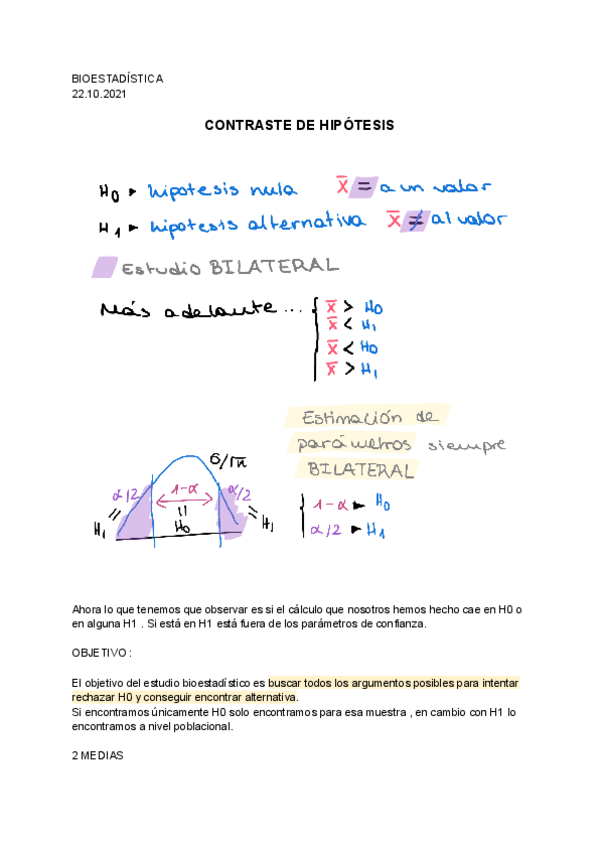 BIOESTADÍSTICA
22.10.2021
CONTRASTE DE HIPÓTESIS
H0 ▸ hipotesis nula x̄ = a un valor
H1 ▸ hipotesis alternativa x̄ ≠ al valor
Estudio BILATERAL
Más adelante ... { x̄ > H0
x̄ < H1
x̄ < H0
x̄ > H1
Estimación de
parámetros siempre
BILATERAL
σ/√n
α/2 1-α α/2
H1 = = H0 = H1
1-α ▸ H0
α/2 ▸ H1
Ahora lo que tenemos que observar es si el cálculo que nosotros hemos hecho cae en H0 o
en alguna H1 . Si está en H1 está fuera de los parámetros de confianza.
OBJETIVO :
El objetivo del estudio bioestadístico es buscar todos los argumentos posibles para intentar
rechazar H0 y conseguir encontrar alternativa.
Si encontramos únicamente H0 solo encontramos para esa muestra , en cambio con H1 lo
encontramos a nivel poblacional.
2 MEDIAS